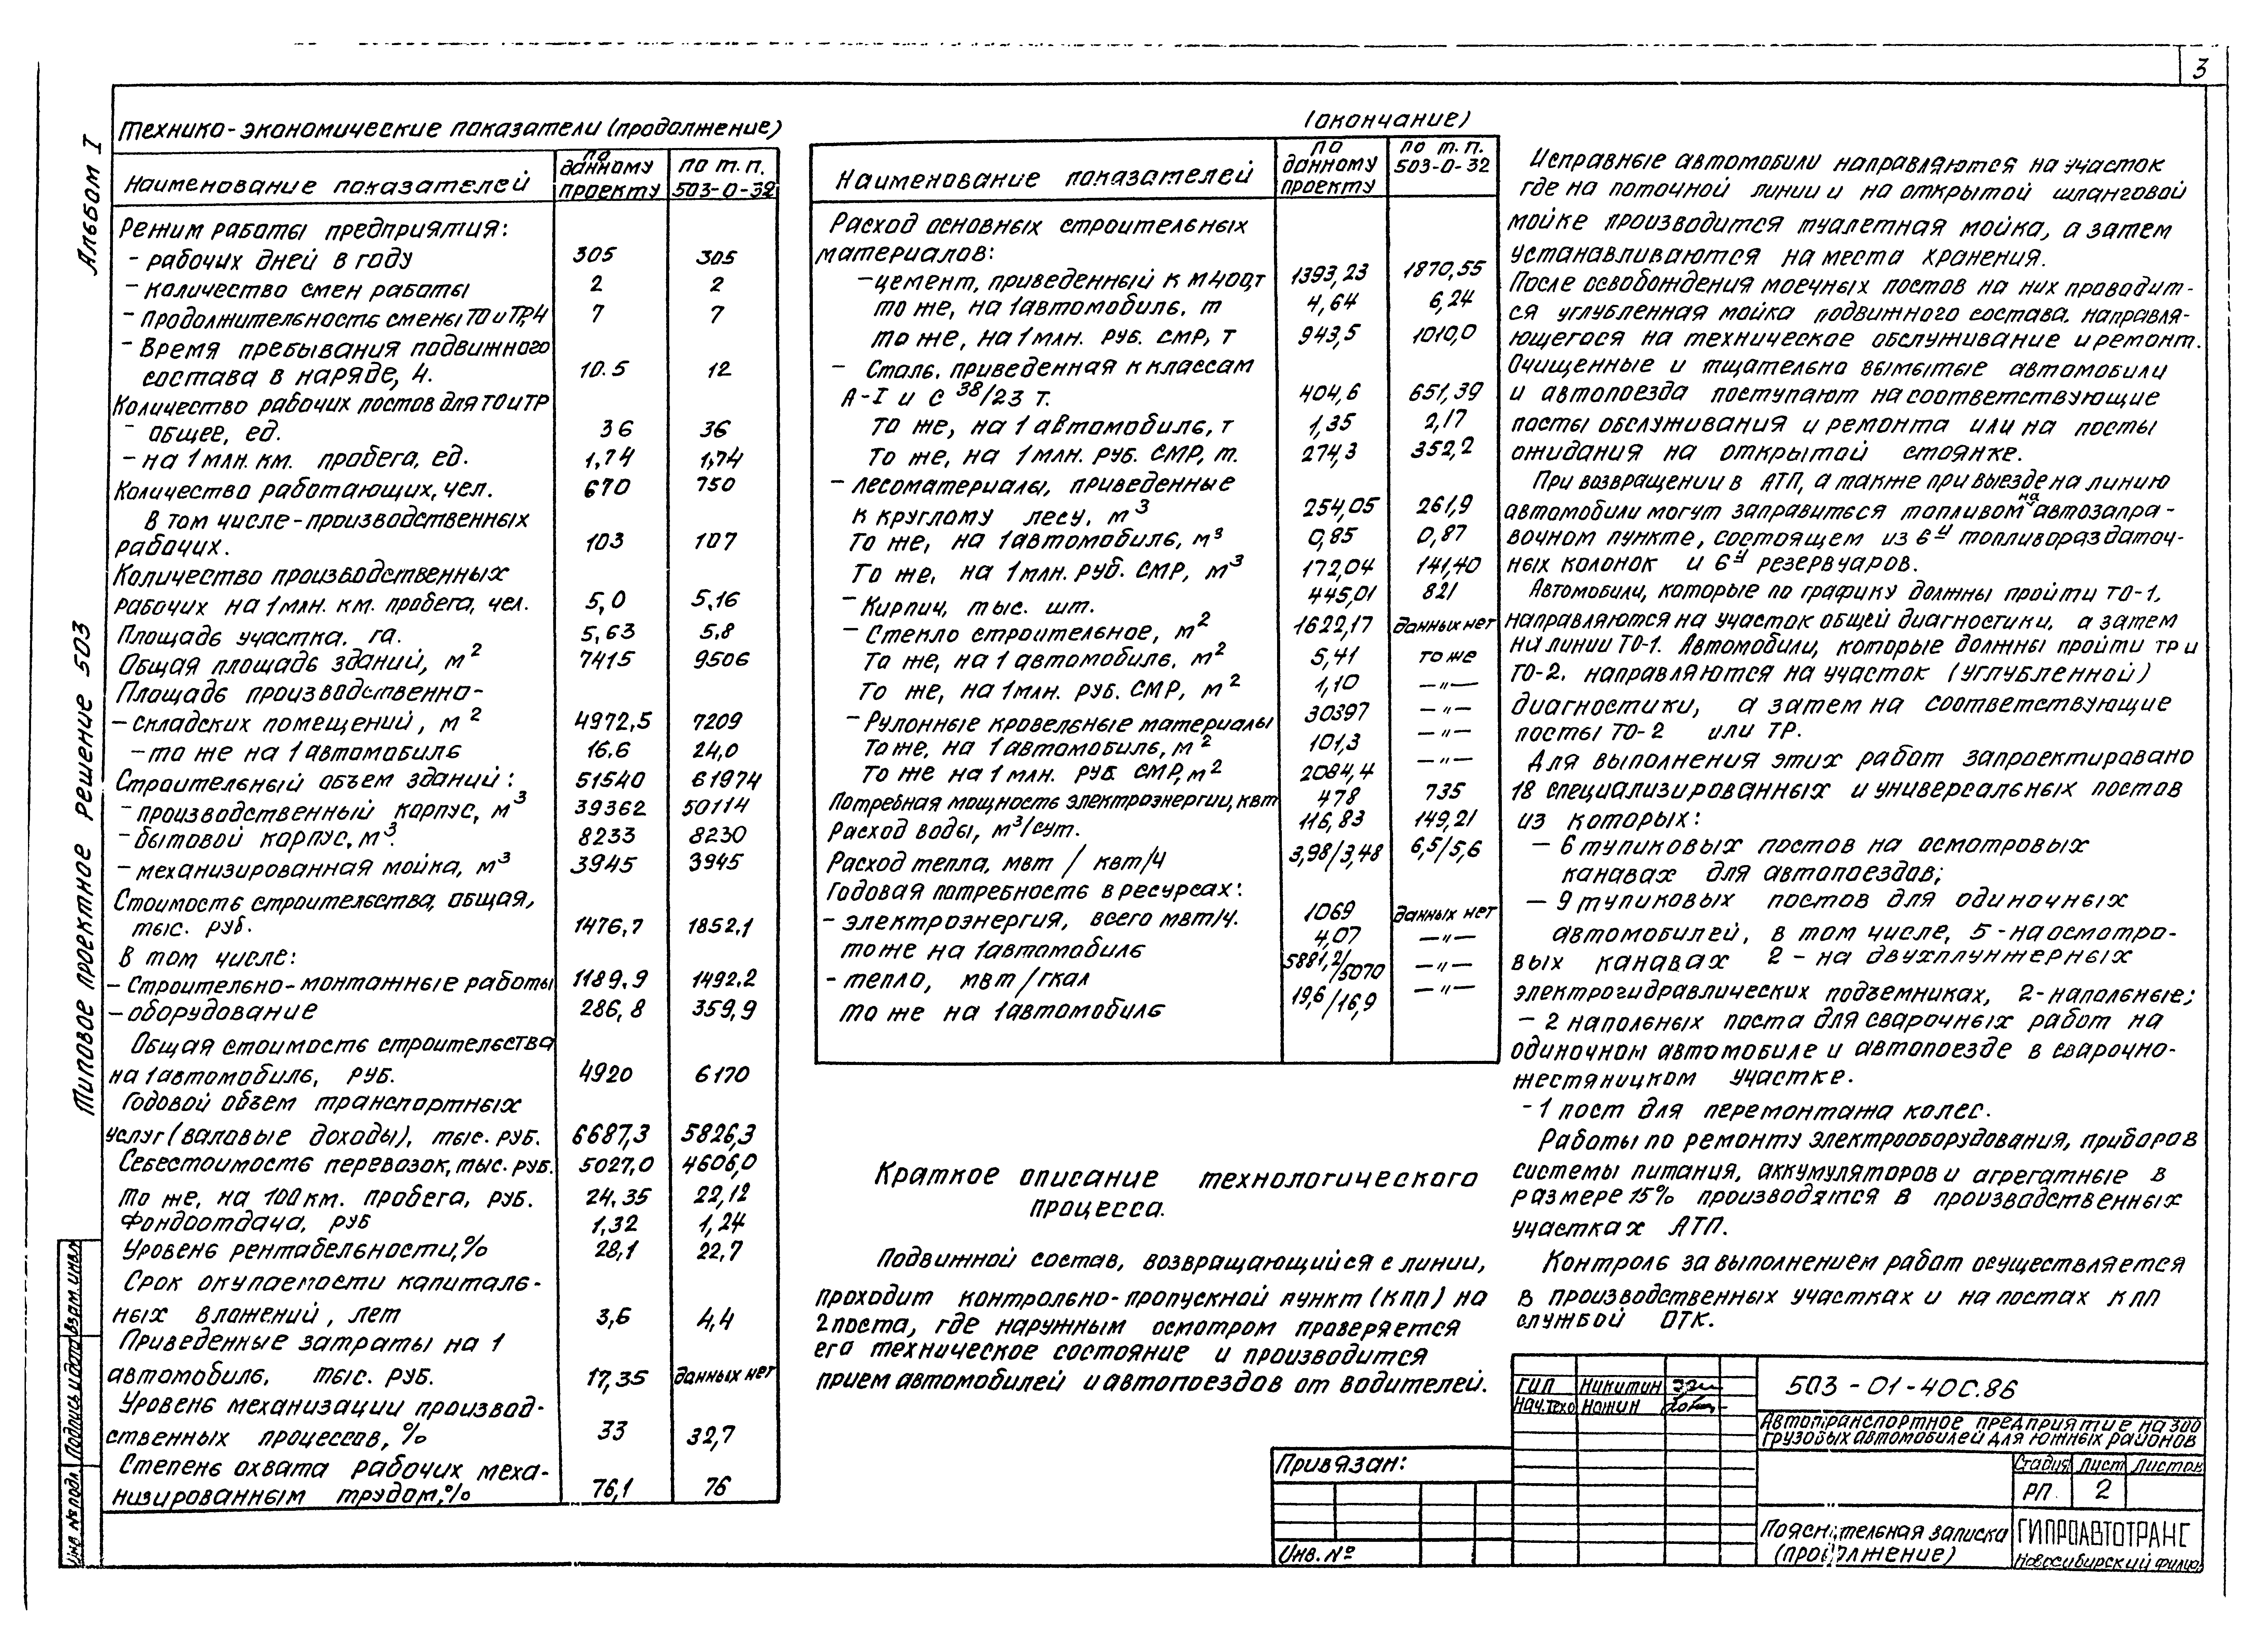 3
Альбом I
Типовое проектное решение 503
Технико-экономические показатели (продолжение)
Наименование показателей | по данному проекту | по т.п. 503-0-32
Режим работы предприятия:
- рабочих дней в году 305 305
- количество смен работы 2 2
- продолжительность смены ТО и ТР, ч 7 7
- Время пребывания подвижного
состава в наряде, ч. 10.5 12
Количество рабочих постов для ТО и ТР
- общее, ед. 36 36
- на 1 млн. км. пробега, ед. 1,74 1,74
Количество работающих, чел. 670 750
В том числе - производственных
рабочих. 103 107
Количество производственных
рабочих на 1 млн. км. пробега, чел. 5,0 5,16
Площадь участка, га. 5,63 5.8
Общая площадь зданий, м² 7415 9506
Площадь производственно-
- складских помещений, м² 4972,5 7209
- то же на 1 автомобиль 16.6 24,0
Строительный объем зданий: 51540 61974
- производственный корпус, м³ 39362 50114
- бытовой корпус, м³. 8233 8230
- механизированная мойка, м³ 3945 3945
Стоимость строительства, общая,
тыс. руб. 1476,7 1852,1
В том числе:
- Строительно-монтажные работы 1189.9 1492.2
- оборудование 286,8 359,9
Общая стоимость строительства
на 1 автомобиль, руб. 4920 6170
Годовой объем транспортных
услуг (валовые доходы), тыс. руб. 6687,3 5826,3
Себестоимость перевозок, тыс. руб. 5027,0 4606,0
то же, на 100 км. пробега, руб. 24.35 22,12
Фондоотдача, руб 1,32 1,24
Уровень рентабельности, % 28,1 22,7
Срок окупаемости капиталь-
ных вложений, лет 3,6 4,4
Приведенные затраты на 1
автомобиль, тыс. руб. 17,35 данных нет
Уровень механизации производ-
ственных процессов, % 33 32,7
Степень охвата рабочих меха-
низированным трудом, % 76,1 76
(окончание)
Наименование показателей | по данному проекту | по т.п. 503-0-32
Расход основных строительных
материалов:
- цемент, приведенный к М400, т 1393,23 1870,55
то же, на 1 автомобиль, т 4,64 6,24
то же, на 1 млн. руб. СМР, т 943,5 1010,0
- Сталь, приведенная к классам
А-I и С 38/23 т. 404,6 651,39
то же, на 1 автомобиль, т 1,35 2,17
то же, на 1 млн. руб. СМР, т. 274,3 352,2
- лесоматериалы, приведенные
к круглому лесу, м³ 254,05 261,9
то же, на 1 автомобиль, м³ 0,85 0,87
То же, на 1 млн. руб. СМР, м³ 172,04 141,40
- Кирпич, тыс. шт. 445,01 821
- Стекло строительное, м² 1622,17 данных нет
То же, на 1 автомобиль, м² 5,41 то же
То же, на 1 млн. руб. СМР, м² 1,10 —"—
- Рулонные кровельные материалы 30397 —"—
То же, на 1 автомобиль, м² 101,3 —"—
То же на 1 млн. руб. СМР, м² 2084,4 —"—
Потребная мощность электроэнергии, квт 478 735
Расход воды, м³/сут. 116,83 149,21
Расход тепла, мвт / квт/ч 3,98/3,48 6,5/5,6
Годовая потребность в ресурсах:
- электроэнергия, всего мвт/ч. 1069 данных нет
то же на 1 автомобиль 4,07 —"—
- тепло, мвт/гкал 5881,2/5070 —"—
то же на 1 автомобиль 19,6/16,9 —"—
Краткое описание технологического
процесса.
Подвижной состав, возвращающийся с линии,
проходит контрольно-пропускной пункт (КПП) на
2 поста, где наружным осмотром проверяется
его техническое состояние и производится
прием автомобилей и автопоездов от водителей.
Исправные автомобили направляются на участок
где на поточной линии и на открытой шланговой
мойке производится туалетная мойка, а затем
устанавливаются на места хранения.
После освобождения моечных постов на них проводит-
ся углубленная мойка подвижного состава, направля-
ющегося на техническое обслуживание и ремонт.
Очищенные и тщательно вымытые автомобили
и автопоезда поступают на соответствующие
посты обслуживания и ремонта или на посты
ожидания на открытой стоянке.
При возвращении в АТП, а также при выезде на линию
автомобили могут заправиться топливом на автозапра-
вочном пункте, состоящем из 6и топливораздаточ-
ных колонок и 6и резервуаров.
Автомобили, которые по графику должны пройти ТО-1,
направляются на участок общей диагностики, а затем
на линии ТО-1. Автомобили, которые должны пройти ТР и
ТО-2, направляются на участок (углубленной)
диагностики, а затем на соответствующие
посты ТО-2 или ТР.
Для выполнения этих работ запроектировано
18 специализированных и универсальных постов
из которых:
- 6 тупиковых постов на осмотровых
канавах для автопоездов;
- 9 тупиковых постов для одиночных
автомобилей, в том числе, 5 - на осмотро-
вых канавах 2 - на двухплунжерных
электрогидравлических подъемниках, 2 - напольные;
- 2 напольных поста для сварочных работ на
одиночном автомобиле и автопоезде в сварочно-
жестяницком участке.
- 1 пост для перемонтажа колес.
Работы по ремонту электрооборудования, приборов
системы питания, аккумуляторов и агрегатные в
размере 15% производятся в производственных
участках АТП.
Контроль за выполнением работ осуществляется
в производственных участках и на постах КПП
службой ОТК.
Привязан:
Инв. №
ГИП Никитин
Нач.техо Нажин
503-01-40С.86
Автотранспортное предприятие на 300
грузовых автомобилей для южных районов
Стадия Лист Листов
РП. 2
Пояснительная записка
(продолжение)
ГИПРОАВТОТРАНС
Новосибирский филиал
Инв № подл. Подпись и дата Взам.инв.№